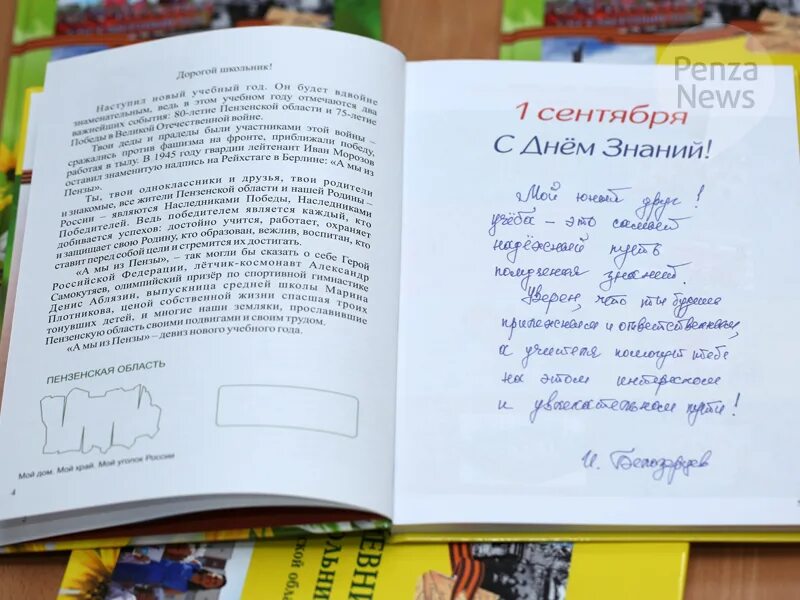 Дорогой школьник!
Наступил новый учебный год. Он будет вдвойне
знаменательным, ведь в этом учебном году отмечаются два
важнейших события: 80-летие Пензенской области и 75-летие
Победы в Великой Отечественной войне.
Твои деды и прадеды были участниками этой войны –
сражались против фашизма на фронте, приближали победу,
работая в тылу. В 1945 году гвардии лейтенант Иван Морозов
оставил знаменитую надпись на Рейхстаге в Берлине: «А мы из
Пензы».
Ты, твои одноклассники и друзья, твои родители
и знакомые, все жители Пензенской области и нашей Родины –
России – являются Наследниками Победы, Наследниками
Победителей. Ведь победителем является каждый, кто
добивается успехов: достойно учится, работает, охраняет
и защищает свою Родину, кто образован, вежлив, воспитан, кто
ставит перед собой цели и стремится их достигать.
«А мы из Пензы», – так могли бы сказать о себе Герой
Российской Федерации, лётчик-космонавт Александр
Самокутяев, олимпийский призёр по спортивной гимнастике
Денис Аблязин, выпускница средней школы Марина
Плотникова, ценой собственной жизни спасшая троих
тонувших детей, и многие наши земляки, прославившие
Пензенскую область своими подвигами и своим трудом.
«А мы из Пензы» – девиз нового учебного года.
ПЕНЗЕНСКАЯ ОБЛАСТЬ
Мой дом. Мой край. Мой уголок России
4
Penza
News
1 сентября
С Днём Знаний!
Мой юный друг!
учёба – это самый
надёжный путь
познания знаний.
Уверен, что ты будешь
прилежным и ответственным,
а учителя помогут тебе
на этом интересном
и увлекательном пути!
И. Белозерцев